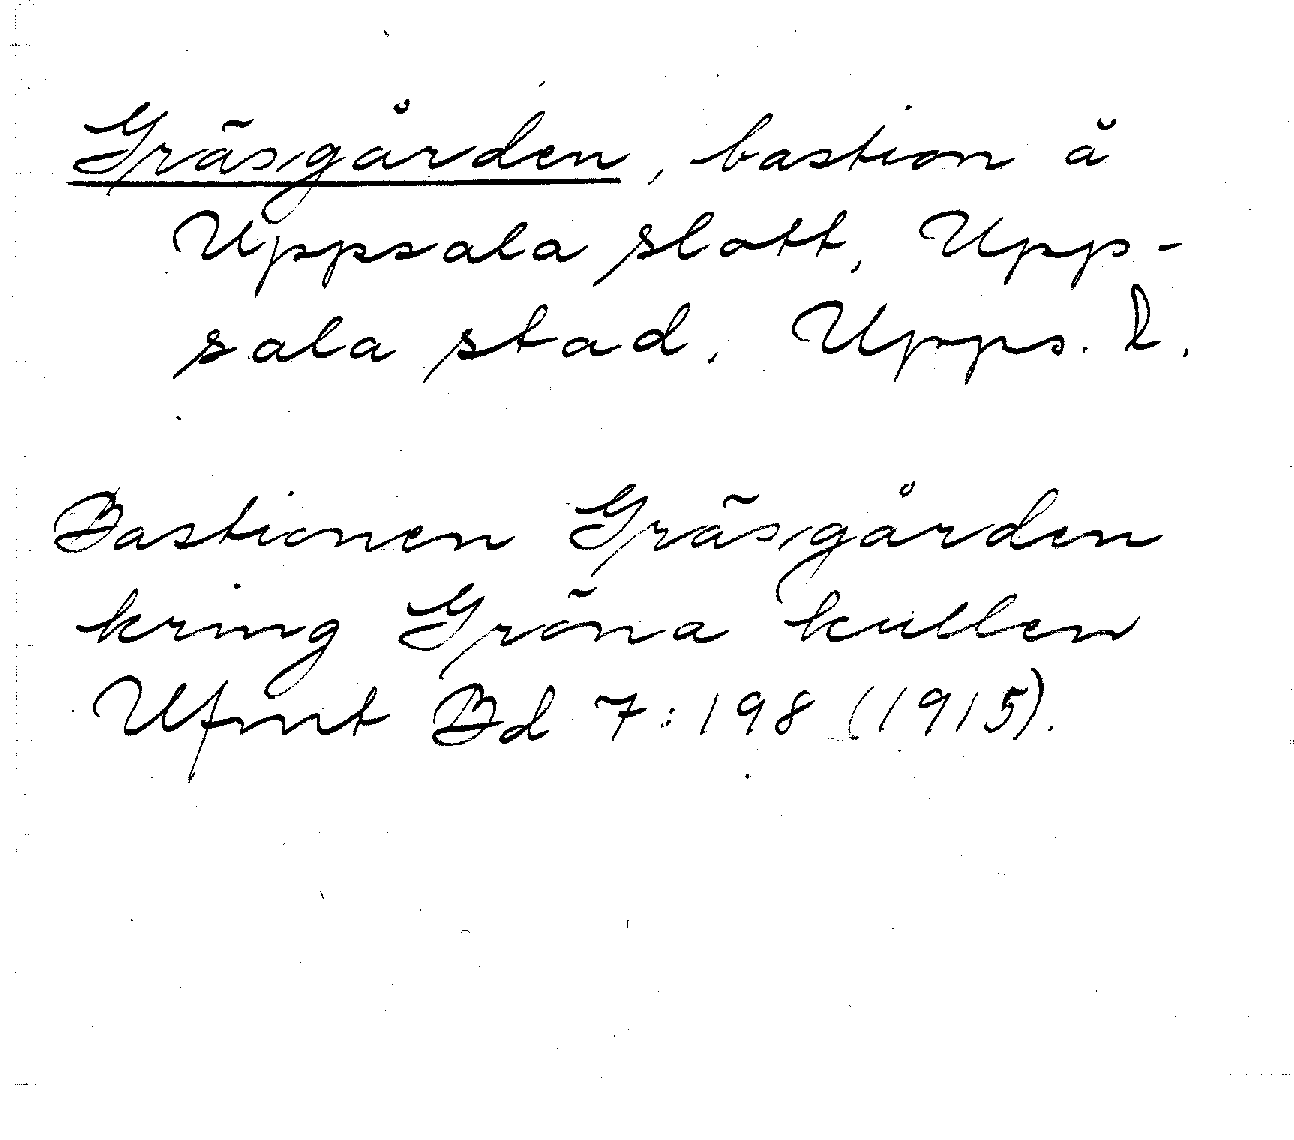 Gräsgården, bastion å
Uppsala slott, Upp-
sala stad. Upps. l.
Bastionen Gräsgården
kring Gröna kullen
Ufmt Bd 7:198 (1915).